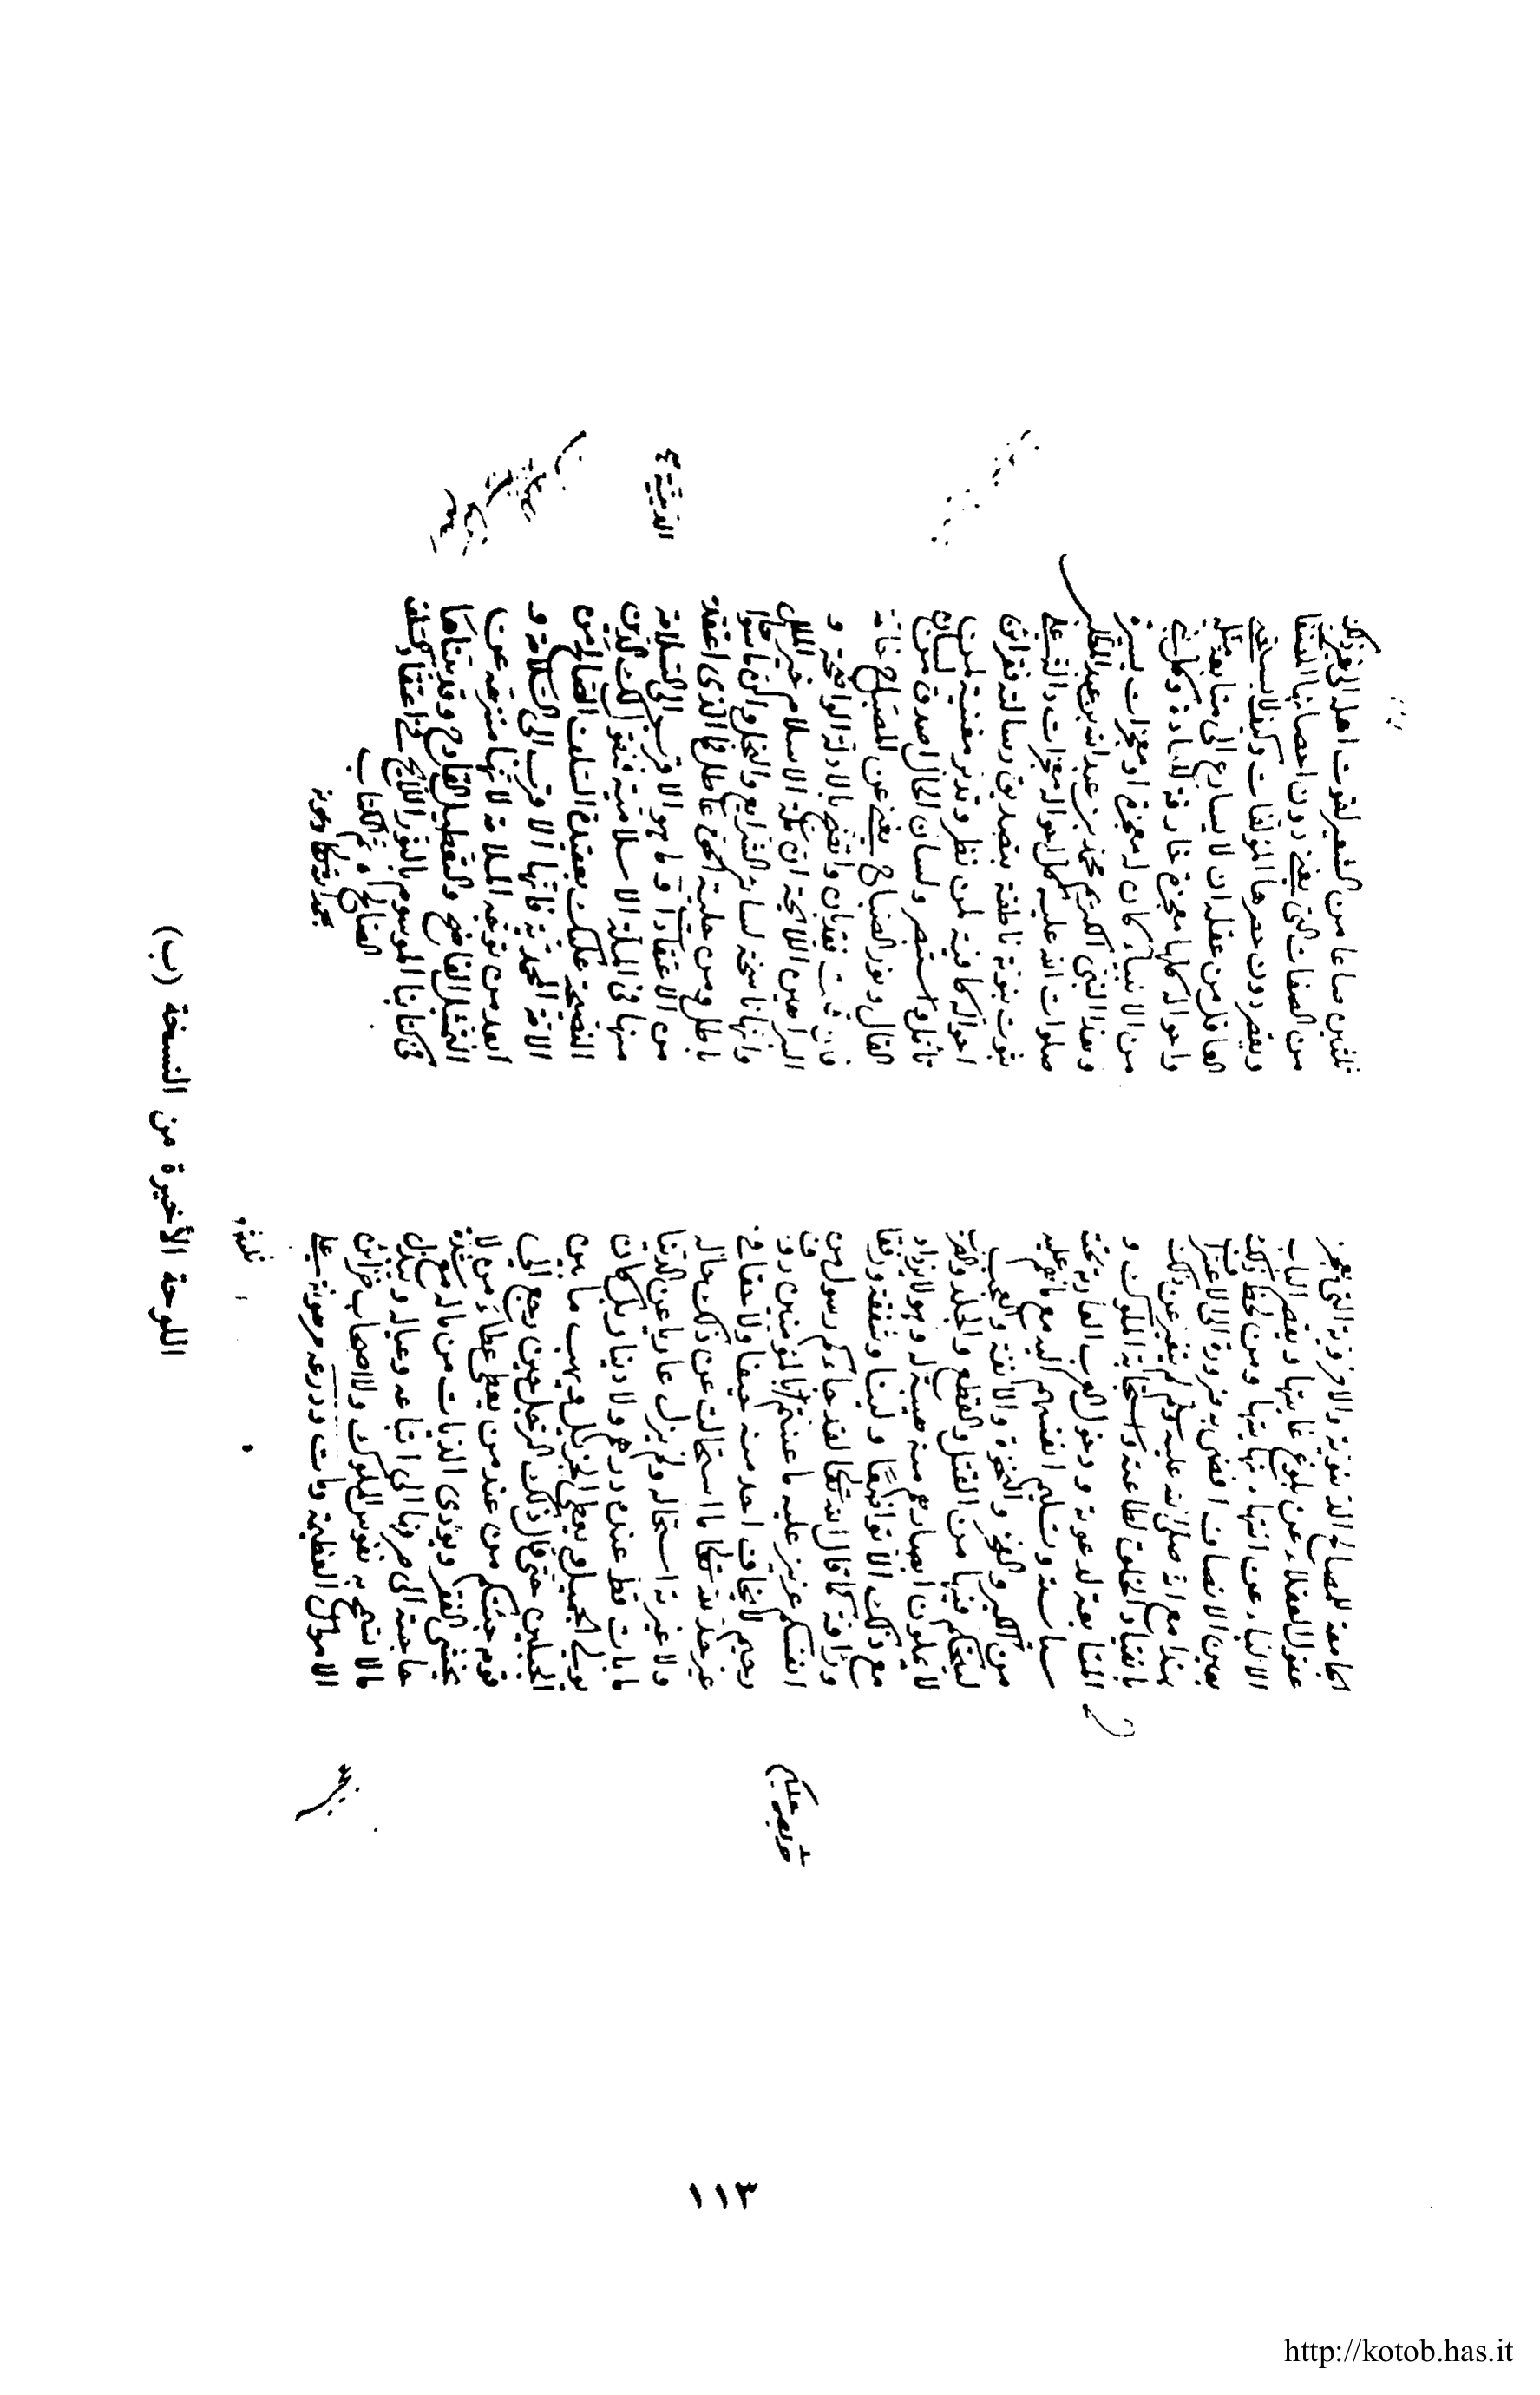 كافة المصالح الدنيوية والاخروية التى تعجز
عقول العقلاء عن بلوغ غايتها ويقصر الباب
الالباء عن انتهاء نهايتها ومن لحظ ذلك
بعين الانصاف افضى به ضرورة الى الاعتراف
هذا مع انه صلى الله عليه وسلم لم يتغير عن ذلك
بانقياد الخلق لطاعته واستجابة الملوك و
المنابذة لدعوته ودخول العرب العاربة تحت
سياسته وتسليم انفسهم اليه مع ما هم عليه
من الكبر والفخر والنخوة والانفة والعجب
ليحكم فيها من القتل والقطع والجلد والضرب
لا يملون ابصارهم منه هيبة له وهو لا يزداد
مع ذلك الا تواضعا ولينا وشفقة ورفقا
ورافة كما قال الله تعالى لقد جاءكم رسول من
انفسكم عزيز عليه ما عنتم بالمؤمنين روف
رحيم لا يخاف احد منه حيفا ولا حقا فى
غير حد لله تعالى ما استحالت عن ذلك حاله
ولا غيرته استحاله ولم يزل عاريا عن الدنيا
ما بات قط عنده درهم ولا دينار بل كان
يولى الجميل ويعطى الجزيل ويهب ما بين
الجبلين حتى قال ذلك الرجل حين رجع الى
قومه جئتكم من عند من يعطى عطاء من لا
يخشى الفقر ويؤدى الديات من ماله مع شدة
حاجته الى صرفها الى اتباعه وعياله ويبذل
ما لا تسمح به نفوس الملوك ولا اصحاب خزاين
الاموال العظيمة ومات ودرعه مرهونة على
ثلثين صاعا من شعير لقوت اهله الى غير ذلك
من الصفات التى يفنى دون احصائها المثنا
ويقصر دون حصرها المؤلفات وكيف لا يسع
العاقل من عقله ان لا يسارع الى متابعة مثل
واحواله كلها معجزة خارقة للعادة وكل نبى
من الانبياء كان له معجزة او معجزات يسيرة
وهذا النبى الكريم محمد بن عبد الله بن عبد المطلب
صلوات الله عليه كل احواله معجزات دالة على
ثبوت نبوته ناطقة بتصديق رسالته فقرائن
احواله كافية لمن نظر وتدبر مغنية لمن
تأمل واستبصر ولسان الحال اصدق من لسان
القال ونور الصباح يغنى عن المصباح
فان ثبت فقد بان واتضح بالادلة الواضحة و
البراهين اللائحة ان ملة الاسلام خير الملل
وانها ناسخة لسائر الشرايع والنحل وان ما سواها
باطل ومن حلية الحق عاطل فما الذى اعتقد
من الاعتقادات وما هو الاقرب الى السلامة
منها فى الملة الاسلامية فنقول لك الدين
النصيحة عليك بعقيدة السلف الصالح من
الامة المحمدية فانها الاقرب الى السلامة و
ابعد من توقع الملامة لانها متنزهة عن
التمثيل الفاضح والتعطيل القادح وقد بيناها
فى كتابنا الموسوم بالنور اللائح فى اعتقاد السلف
الصالح تم الكتاب
بحمد الله وعونه
اللوحة الأخيرة من النسخة (ب)
١١٣
http://kotob.has.it